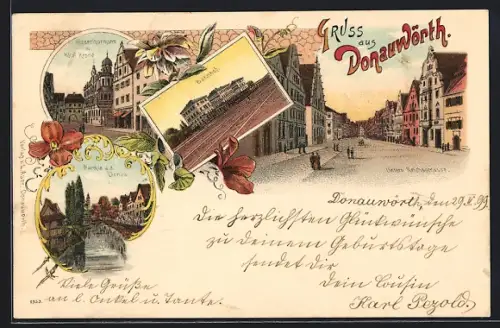 Gruss
aus
Donauwörth.
Bahnhof.
Partie a. d.
Donau
Untere Reichsstrasse.
Donauwörth, den 29.8.99
Die herzlichsten Glückwünsche
zu deinem Geburtstage
sendet dir
Dein Cousin
Karl Pezold.
Viele Grüße
an l. Onkel u. Tante.